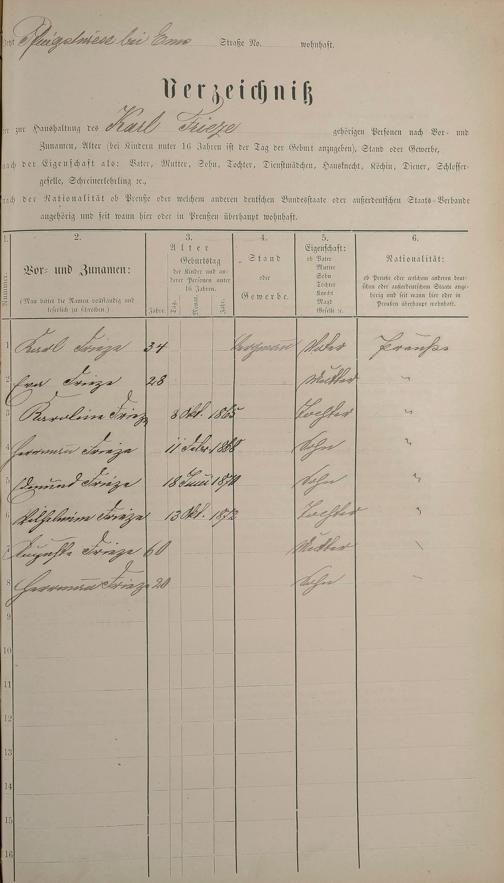 bei Ems Straße No. wohnhaft.
Verzeichniß
der zur Haushaltung des Karl Frieze gehörigen Personen nach Vor- und
Zunamen, Alter (bei Kindern unter 16 Jahren ist der Tag der Geburt anzugeben), Stand oder Gewerbe,
nach der Eigenschaft als: Vater, Mutter, Sohn, Tochter, Dienstmädchen, Hausknecht, Köchin, Diener, Schlosser-
geselle, Schreinerlehrling ꝛc.,
nach der Nationalität ob Preuße oder welchem anderen deutschen Bundesstaate oder außerdeutschen Staats-Verbande
angehörig und seit wann hier oder in Preußen überhaupt wohnhaft.
1. 2. 3. 4. 5. 6.
Nummer.
Vor- und Zunamen:
(Man bittet die Namen vollständig und
leserlich zu schreiben)
Alter
Geburtstag
der Kinder und an-
derer Personen unter
16 Jahren.
Jahre. Tag. Monat. Jahr.
Stand
oder
Gewerbe.
Eigenschaft:
ob Vater
Mutter
Sohn
Tochter
Knecht
Magd
Geselle ꝛc.
Nationalität:
ob Preuße oder welchem anderen deut-
schen oder außerdeutschen Staate ange-
hörig und seit wann hier oder in
Preußen überhaupt wohnhaft.
1 Karl Frieze 34 Bergman Vader Preuße
2 Eva Frieze 28 Mutter "
3 Karoline Frieze 8 Okt. 1865 Tochter "
4 Herrmann Frieze 11 Febr. 1868 Sohn "
5 Edmund Frieze 18 Juni 1870 Sohn "
6 Wilhelmine Frieze 13 Okt. 1872 Tochter "
7 Auguste Frieze 60 Mutter
8 Herrmann Frieze 20 Sohn
9
10
11
12
13
14
15
16